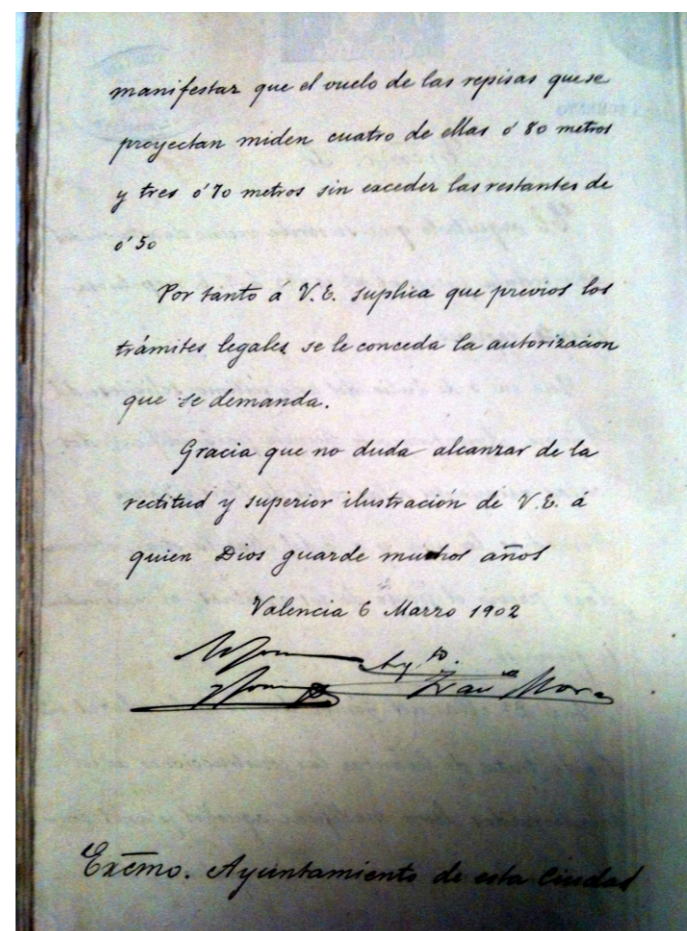 manifestar que el vuelo de las repisas que se
proyectan miden cuatro de ellas o'80 metros
y tres o'70 metros sin exceder las restantes de
o'50
Por tanto á V.E. suplica que previos los
trámites legales se le conceda la autorizacion
que se demanda.
Gracia que no duda alcanzar de la
rectitud y superior ilustración de V.E. á
quien Dios guarde muchos años
Valencia 6 Marzo 1902
Mora
Excmo. Ayuntamiento de esta Ciudad